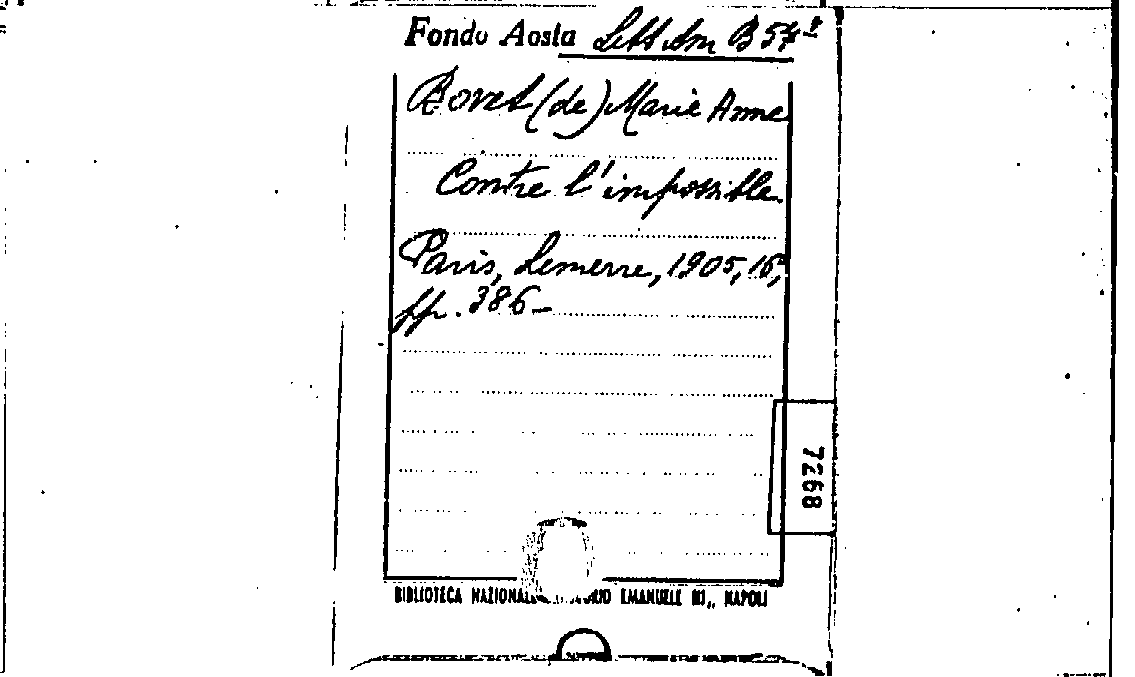 Fondo Aosta Lett. Am B 54
Bovet (de) Marie Anne
Contre l'impossible.
Paris, Lemerre, 1905, 16°,
pp. 386-
7268
BIBLIOTECA NAZIONALE EMANUELE III,, NAPOLI